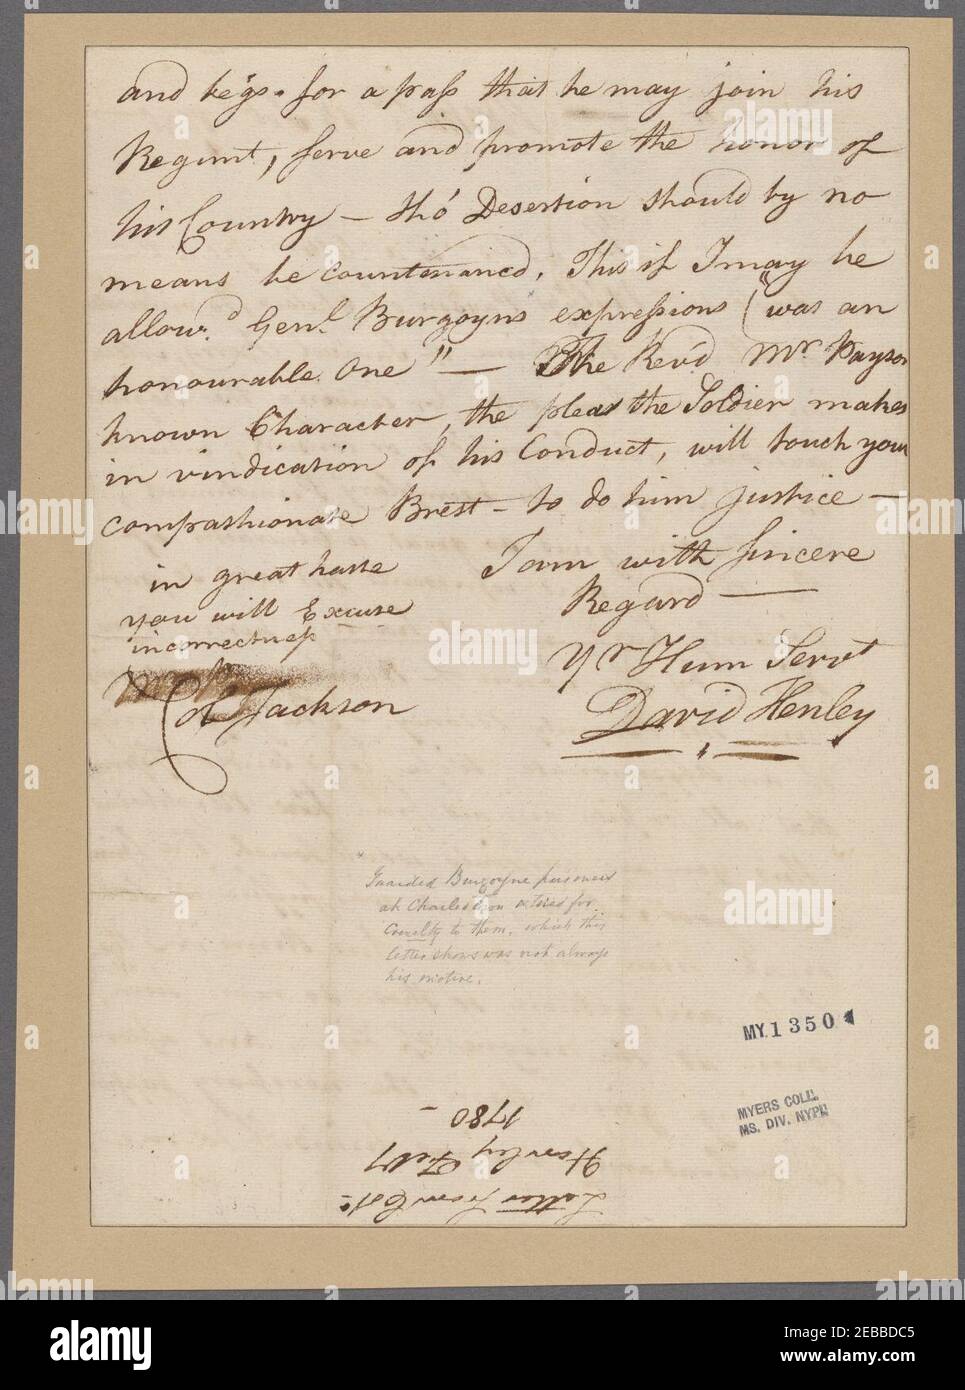 and begs for a pass that he may join his
Regimt, serve and promote the honor of
his Country – tho' Desertion should by no
means be countenanced, This if I may be
allow.d Genl. Burgoyns expressions ("was an
honourable One" — The Revd Mr Payson
known Character, the pleas the Soldier makes
in vindication of his Conduct, will touch your
compashionate Brest – to do him justice –
I am with sincere
Regard —
Yr Hum Servt
David Henley
in great haste
you will Excuse
incorrectness
Col Jackson
Guarded Burgoyne prisoners
at Charlestown & tried for
Cruelty to them, which this
letter shows was not always
his motive.
MY.1350
MYERS COLL.
MS. DIV. NYPL
Letter from Colo
Henley Feb 17
1780 –
alamy
Image ID: 2EBBDC5
www.alamy.com